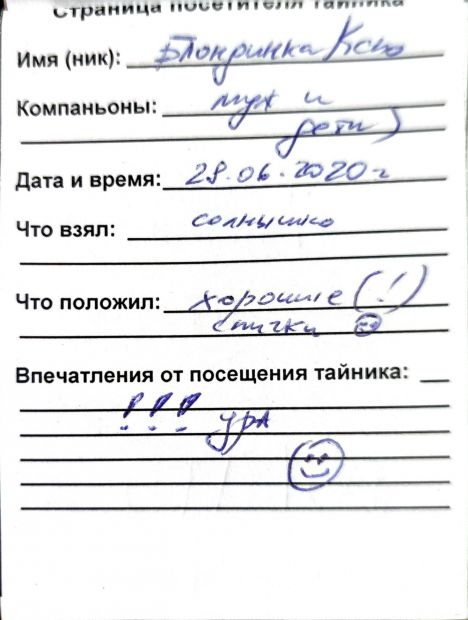 Страница посетителя тайника
Имя (ник): Блондинка Кспо
Компаньоны: муж и
дети)
Дата и время: 28.06.2020г
Что взял: солнышко
Что положил: хорошие (!)
спички
Впечатления от посещения тайника:
!!! ура